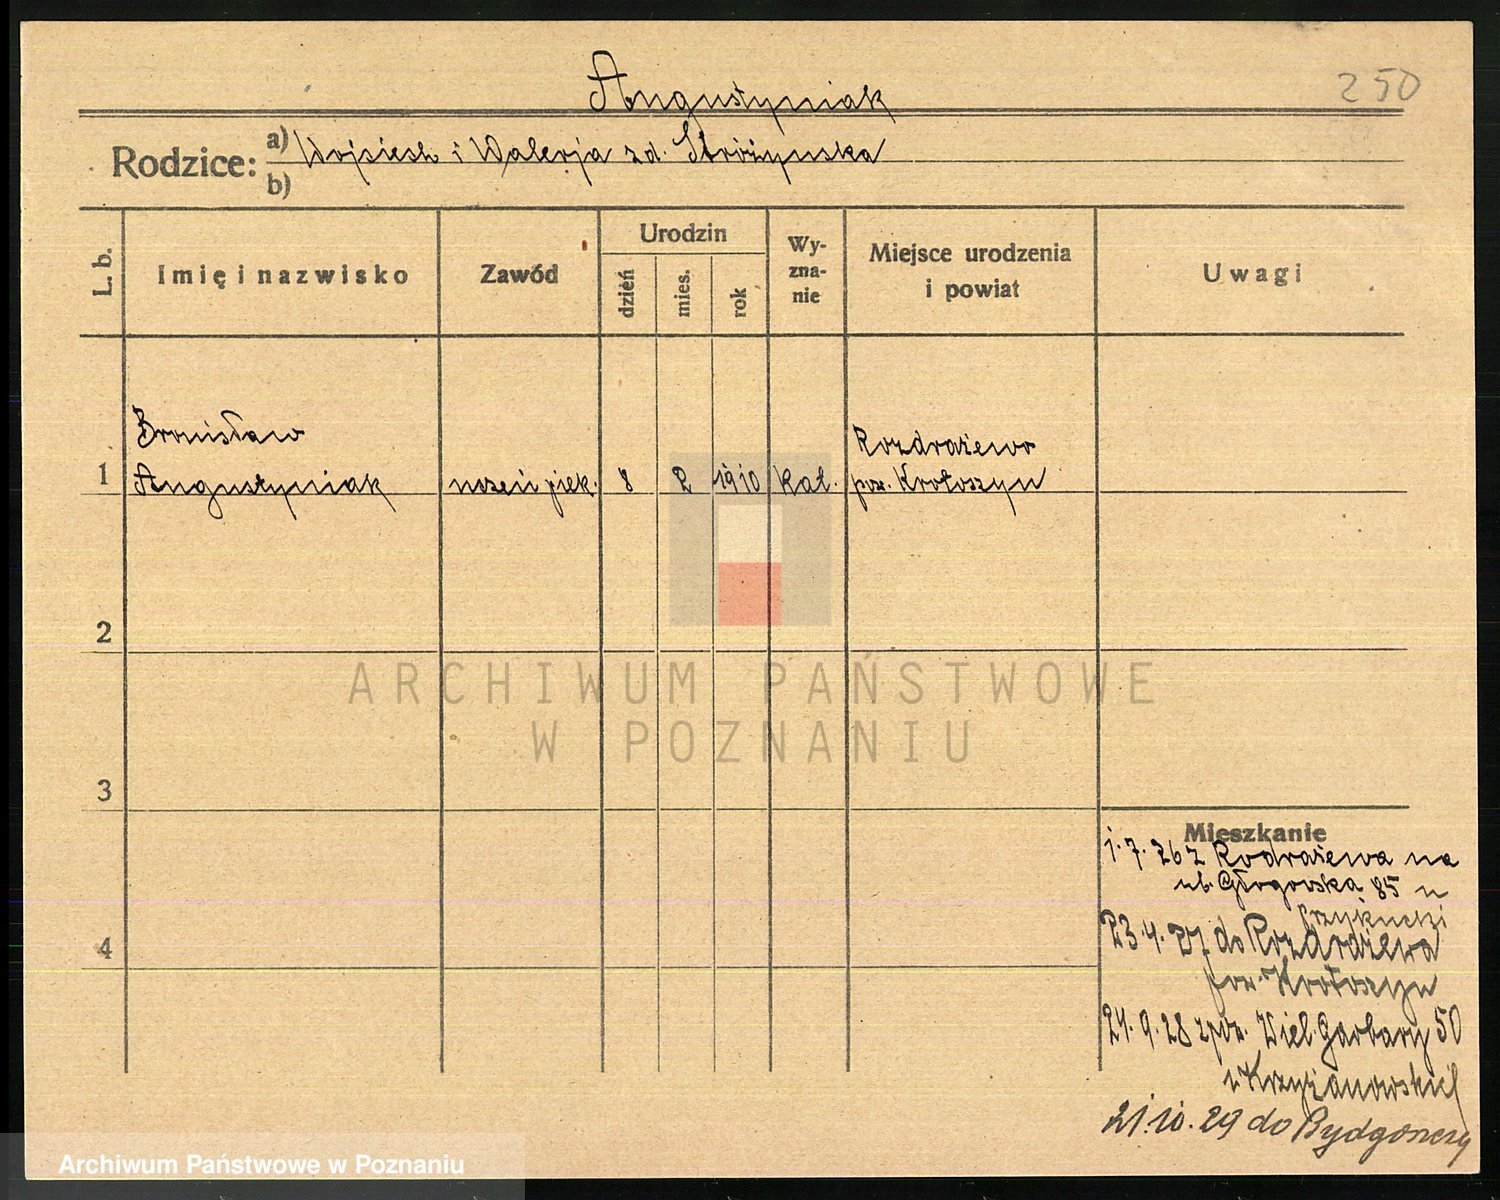 250
Augustyniak
Rodzice: a) Wojciech i Walerja zd. Stróżyńska
b)
L. b.
Imię i nazwisko
Zawód
Urodzin
dzień
mies.
rok
Wy-
zna-
nie
Miejsce urodzenia
i powiat
Uwagi
Bronisław
Rozdrażewo
1 Augustyniak uczeń piek. 8 2 1910 kat. pow. Krotoszyn
2
ARCHIWUM PAŃSTWOWE
W POZNANIU
3
4
Mieszkanie
1.7.26 z Rodrażewa na
ul. Głogowska 85 u
23.4.27 do Rozdrażewa
pow. Krotoszyn
24.9.28 Wiel. Garbary 50
u Krzyżanowskiej
21.10.29 do Bydgoszczy
Archiwum Państwowe w Poznaniu